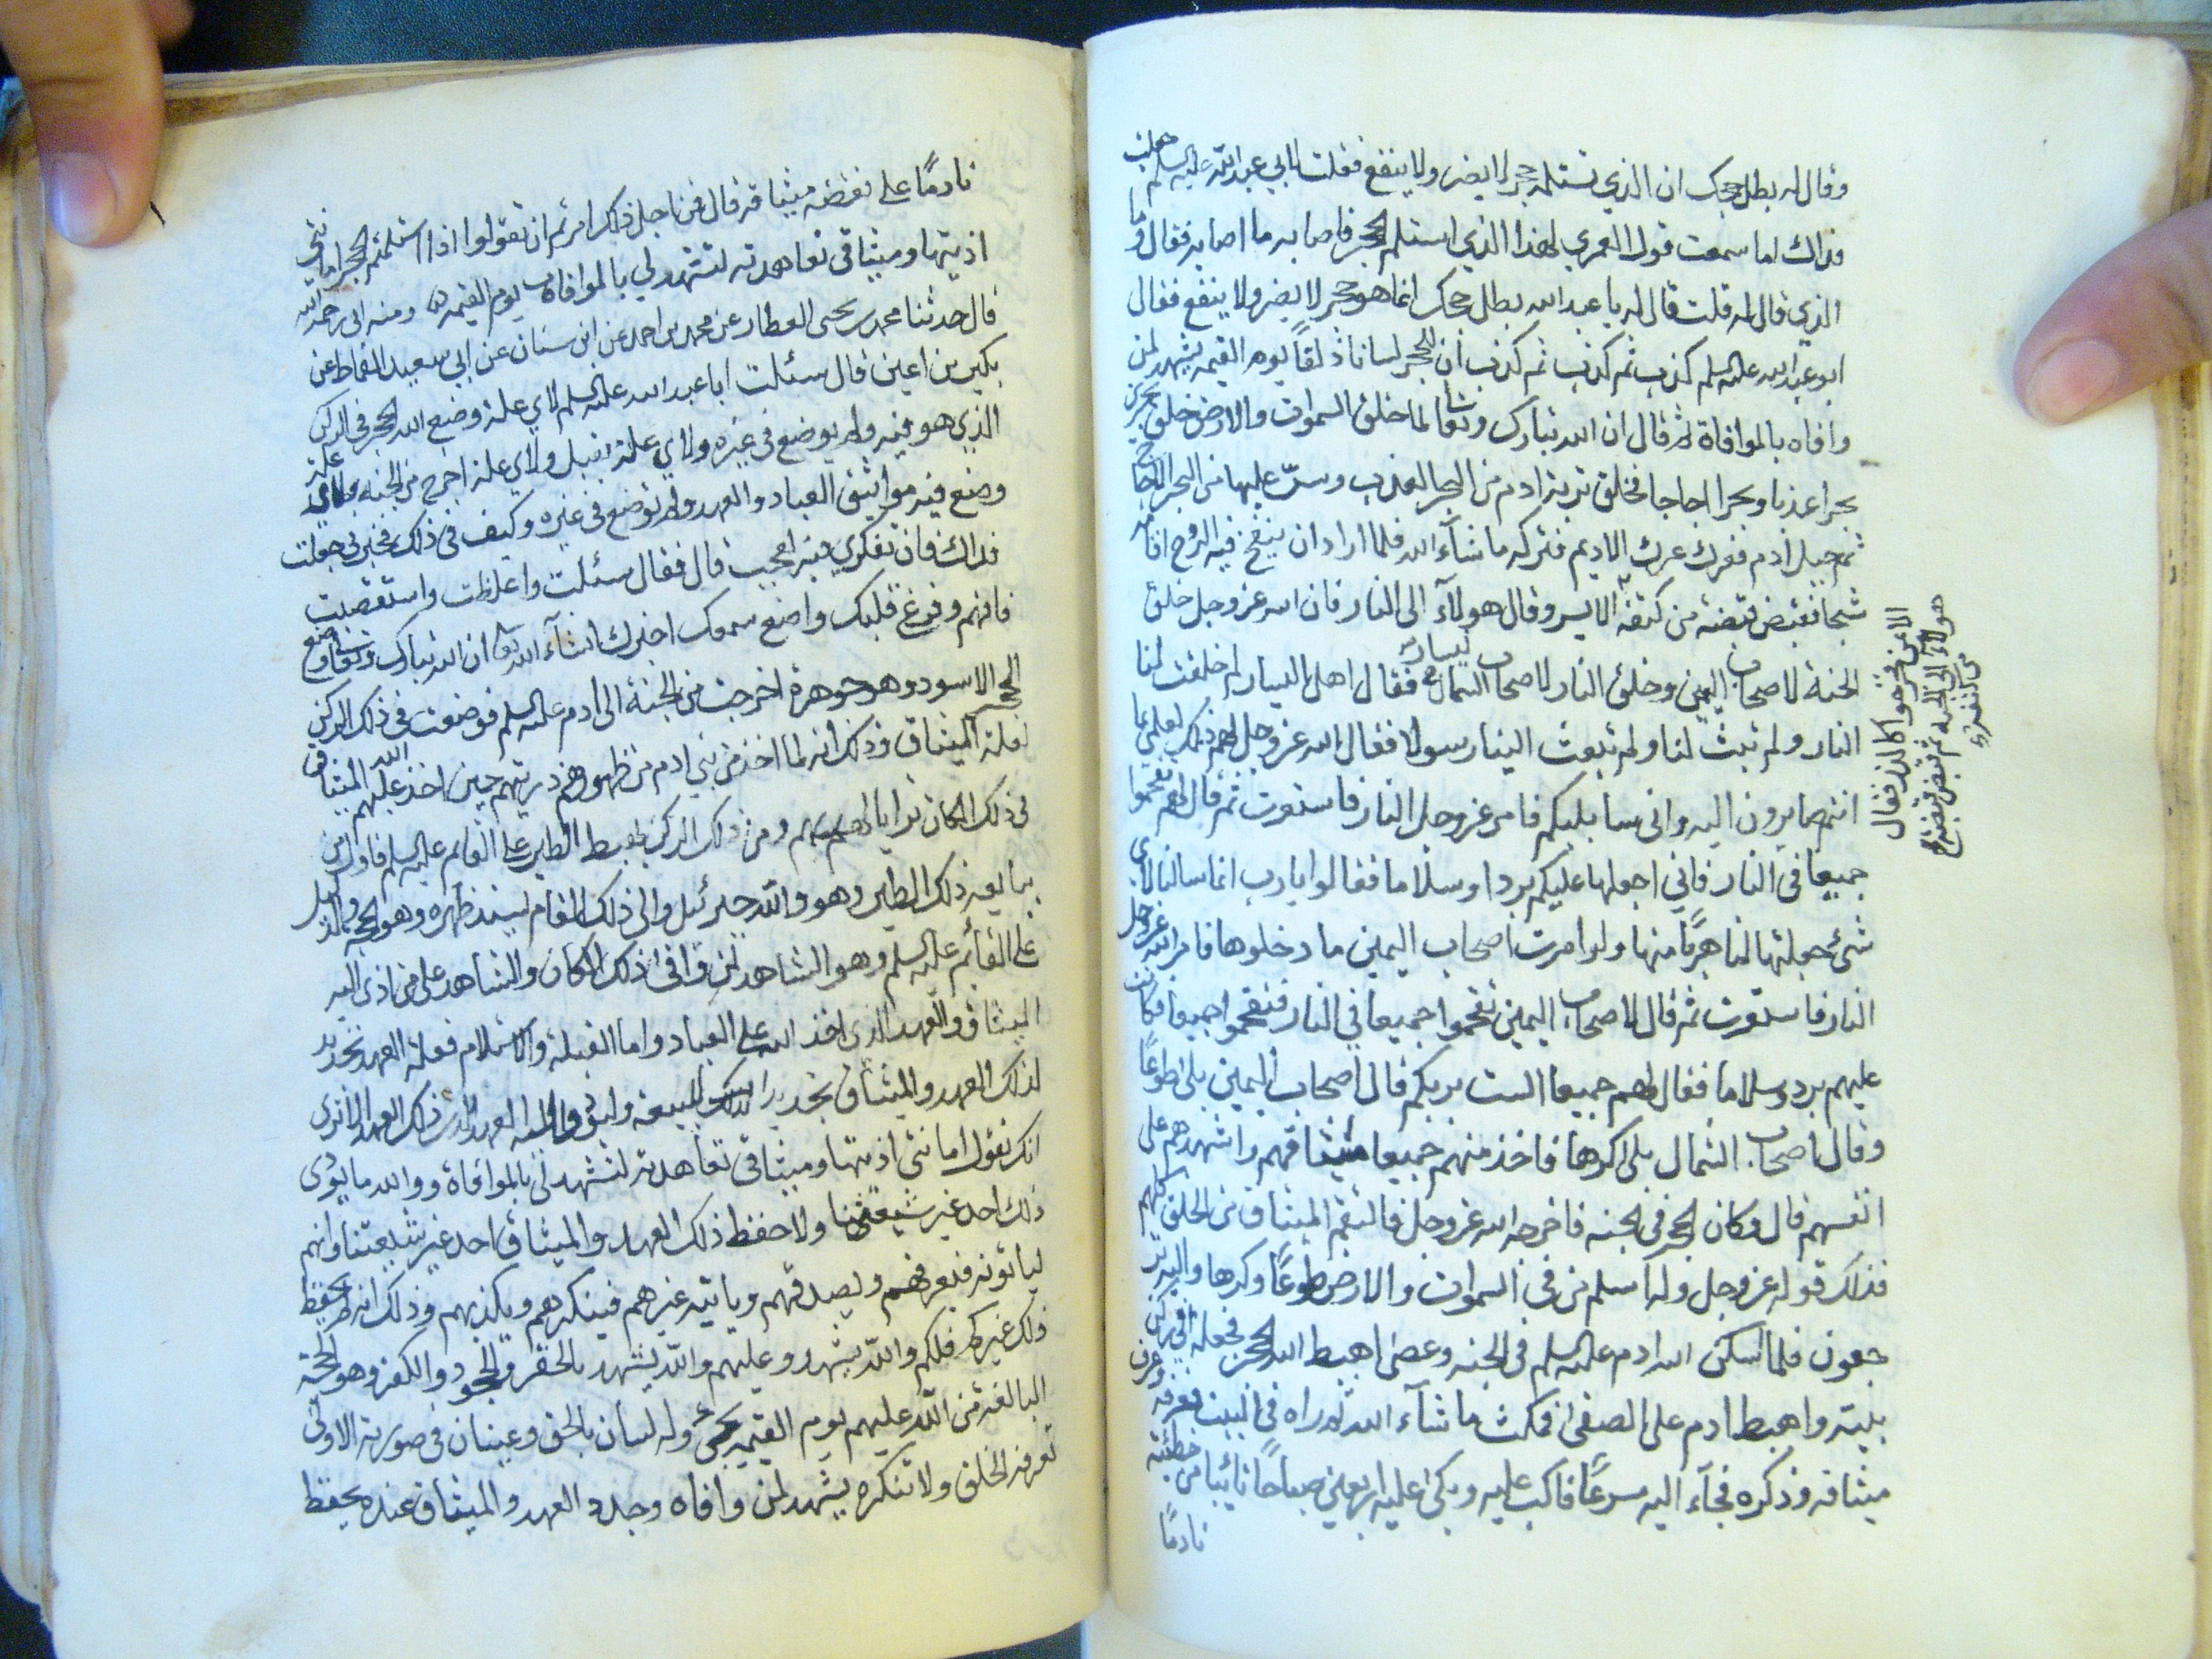 وقال له بطل حجك ان الذي تستلمه حجر لا يضر ولا ينفع فقلت لابي عبد الله عليه السلم جعلت
فداك اما سمعت قول العمري لهذا الذي استلم الحجر فاصابه ما اصابه فقال وما
الذي قال له قلت قال له يا عبد الله بطل حجك انما هو حجر لا يضر ولا ينفع فقال
ابو عبد الله عليه السلم كذب ثم كذب ثم كذب ان للحجر لسانا ذلقاً يوم القيمة يشهد لمن
وافاه بالموافاة ثم قال ان الله تبارك وتعالى لما خلق السموات والارض خلق بحرين
بحرا عذبا وبحرا اجاجا فخلق تربة ادم من البحر العذب وسن عليها من البحر الاجاج
ثم جبل ادم فعرك عرك الاديم فتركه ما شآء الله فلما اراد ان ينفخ فيه الروح اقامه
شبحا فقبض قبضة من كتفه الايسر وقال هولآء الى النار فان الله عز وجل خلق
الجنة لاصحاب اليمين وخلق النار لاصحاب الشمال فقال اهل اليسار لم خلقت لنا
النار ولم تبث لنا ولم تبعث الينا رسولا فقال الله عز وجل لهم ذلك لعلمي بما
انتم صايرون اليه واني سابليكم فامر عز وجل النار فاستعرت ثم قال لهم تقحموا
جميعا في النار فاني اجعلها عليكم بردا وسلاما فقالوا يا رب انما سالناك لاي
شئ جعلتها لنا هربًا منها ولو امرت اصحاب اليمين ما دخلوها فامر الله عز وجل
النار فاستعرت ثم قال لاصحاب اليمين تقحموا جميعا في النار فتقحموا جميعا فكانت
عليهم بردا وسلاما فقال لهم جميعا الست بربكم قال اصحاب اليمين بلى طوعاً
وقال اصحاب الشمال بلى كرها فاخذ منهم جميعا ميثاقهم واشهدهم على
انفسهم قال وكان الحجر في الجنه فاخرجه الله عز وجل فالتقم الميثاق من الخلق كلهم
فذلك قوله عز وجل وله اسلم من في السموات والارض طوعًا وكرها واليه تر
جعون فلما اسكن الله ادم عليه السلم في الجنه وعصى اهبط الله الحجر فجعله في ركن
بيته واهبط ادم على الصفى فمكث ما شآء الله ثم راه في البيت فعرفه وعرف
ميثاقه وذكره فجآء اليه مسرعًا فاكب عليه وبكى عليه اربعين صباحًا تائبا من خطيئته
نادمًا
الايمن فخرجوا كالذر فقال
هولآء الى الجنه ثم قبض قبضة
نادمًا على نقضه ميثاقه قال فمن اجل ذلك امرتم ان تقولوا اذا استلمتم الحجر امانتي
اديتها وميثاقي تعاهدته لتشهد لي بالموافاة يوم القيمة ومنه ابي رحمه الله
قال حدثنا محمد بن يحيى العطار عن محمد بن احمد عن ابن سنان عن ابي سعيد القماط عن
بكير بن اعين قال سئلت ابا عبد الله عليه السلم لاي علة وضع الله الحجر في الركن
الذي هو فيه ولم يوضع في غيره ولاي علة يقبل ولاي علة اخرج من الجنة ولاي علة
وضع فيه مواثيق العباد والعهد ولم توضع في غيره وكيف في ذلك تخبرني جعلت
فداك فان تفكري فيه لعجيب قال فقال سئلت واعلظت واستقصيت
فافهم وفرغ قلبك واصغ سمعك اخبرك انشآء الله تعالى ان الله تبارك وتعالى وضع
الحجر الاسود وهو جوهرة اخرجت من الجنة الى ادم عليه السلم فوضعت في ذلك الركن
لعلة الميثاق وذلك انه لما اخذ من بني ادم من ظهورهم ذريتهم حين اخذ الله عليهم الميثاق
في ذلك المكان ترايا لهم ربهم ومن ذلك الركن يهبط الطير على القايم عليه السلم فاول من
يبايعه ذلك الطير وهو والله جبرئيل والى ذلك المقام يسند ظهره وهو الحجه والدليل
على القائم عليه السلم وهو الشاهد لمن وافى ذلك المكان والشاهد على من ادى اليه
الميثاق والعهد الذي اخذ الله على العباد واما القبلة والاستلام فعلة العهد تجديد
لذلك العهد والميثاق تجديدا للبيعة وليؤدوا اليه العهد ذلك العهد الا ترى
انك تقول امانتي اديتها وميثاقي تعاهدته لتشهد لي بالموافاة ووالله ما يؤدي
ذلك احد غير شيعتنا ولا حفظ ذلك العهد والميثاق احد غير شيعتنا وانهم
لياتونه فيعرفهم ويصدقهم وياتيه غيرهم فينكرهم ويكذبهم وذلك انه لم يحفظ
ذلك غيركم فلكم والله يشهد وعليهم والله يشهد بالخفر والجحود والكفر وهو الحجة
البالغة من الله عليهم يوم القيمة يجئ وله لسان بالحق وعينان في صورته الاولى
تعرفه الخلق ولا تنكره يشهد لمن وافاه وجدد العهد والميثاق عنده بحفظ